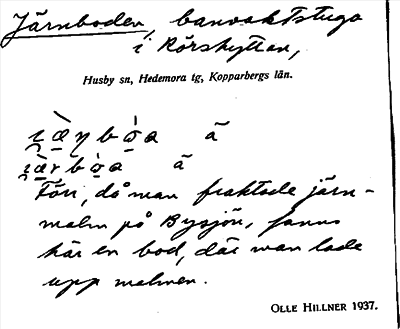 Järnboden, banvaktstuga
i Rörshyttan,
Husby sn, Hedemora tg, Kopparbergs län.
ä
ä
Förr, då man fraktade järn-
malm på Bysjön, fanns
här en bod, där man lade
upp malmen.
OLLE HILLNER 1937.